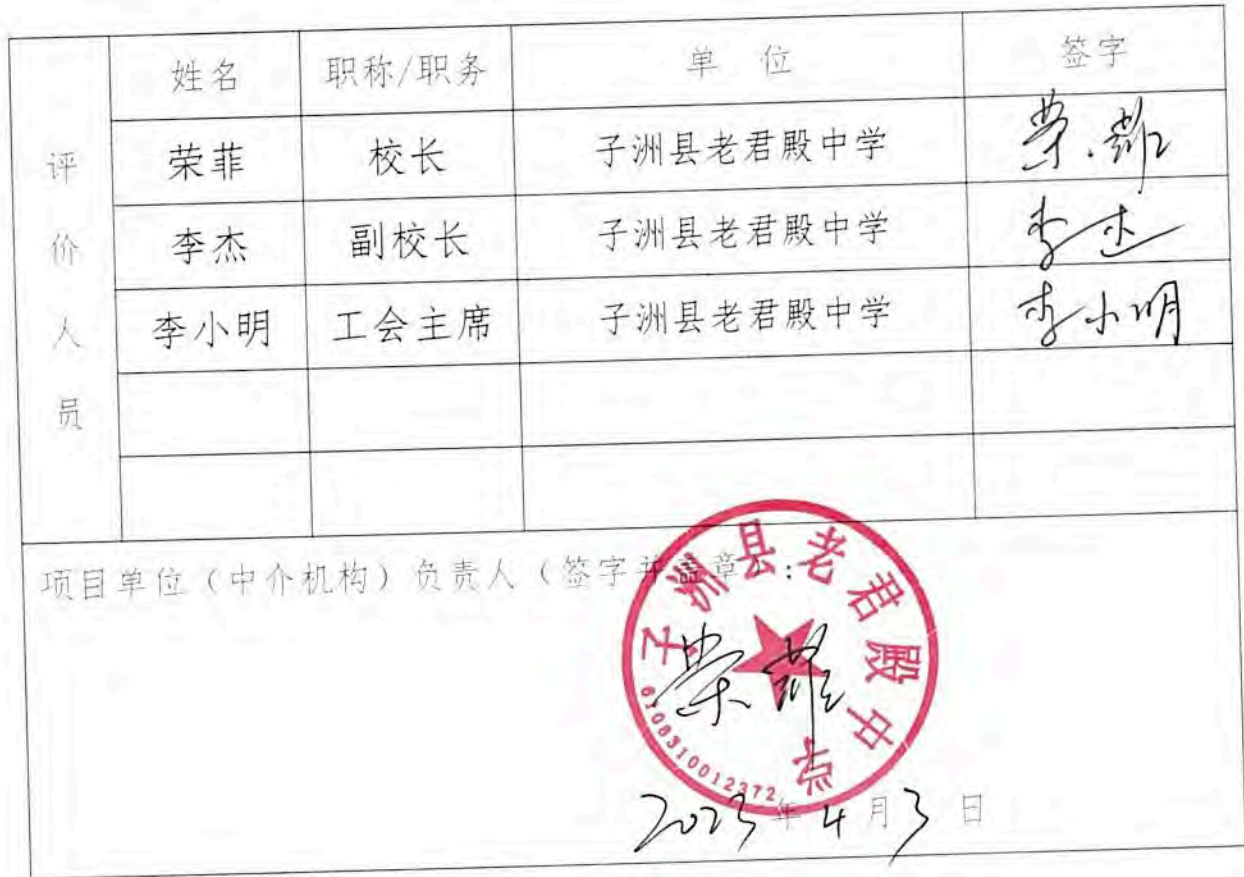 姓名 职称/职务 单 位 签字
评价人员
荣菲 校长 子洲县老君殿中学 荣菲
李杰 副校长 子洲县老君殿中学 李杰
李小明 工会主席 子洲县老君殿中学 李小明
项目单位（中介机构）负责人（签字并盖章）：
子洲县老君殿中学
荣菲
6108310012372
2023年4月3日